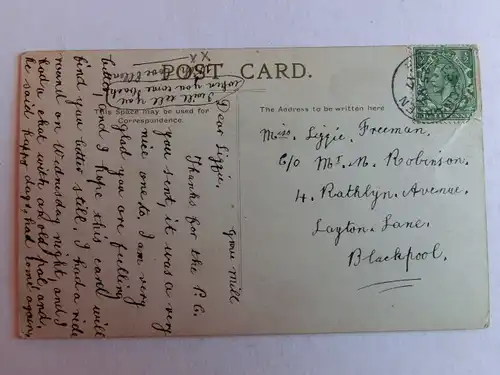 POST CARD.
This Space may be used for
Correspondence.
The Address to be written here
Grove Mill
Dear Lizzie,
Thanks for the P.C.
you sent, it was a very
nice one to, I am very
glad you are feeling
better, and I hope this card will
find you better still. I had a ride
round on Wednesday night and I
had a chat with an old pal, and,
he said happy days, had come again,
I will tell you
when you come back
love Ellen
X X
Miss. Lizzie Freeman.
C/o Mr. M. Robinson.
4. Rathlyn. Avenue.
Layton. Lane.
Blackpool.